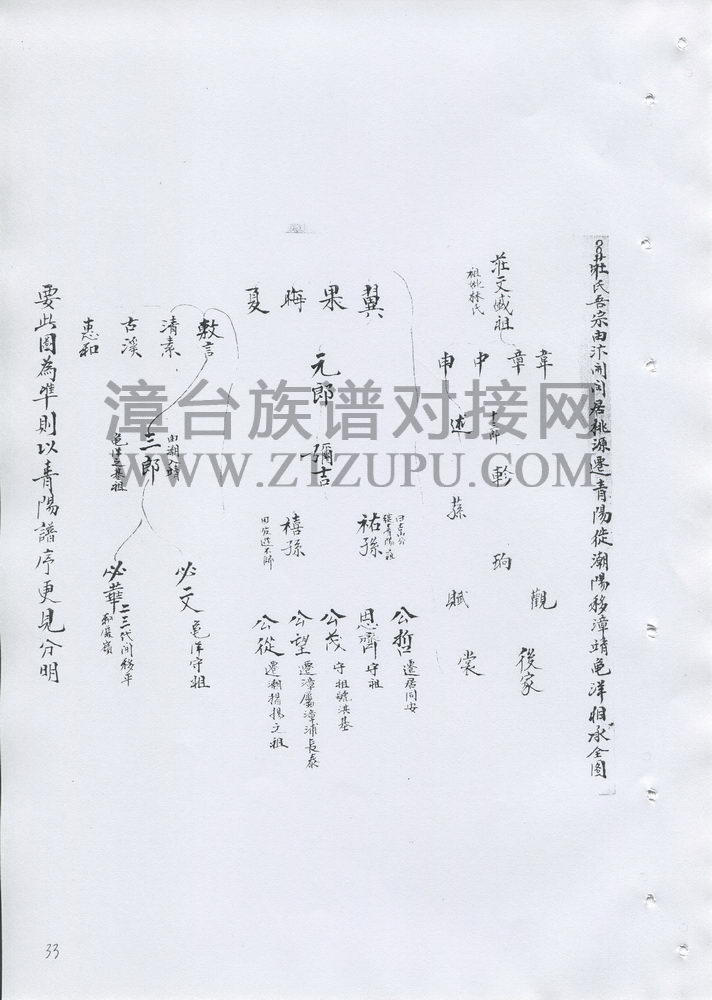 莊氏吾宗由汴開閩居桃源遷青陽徙潮陽移漳靖龜洋相承全图
莊文盛祖
祖妣林氏
韋
章
中
申
十一郎
述
軫
蓀
珣
觀
賦
裳
後家
翼
果
晦
夏
元郎
彌吉
祐孫
禧孫
公哲
遷居同安
思齊
守祖
公茂
守祖號洪基
公望
遷漳屬漳浦長泰
公從
遷潮揭揚之祖
敷言
清素
古溪
惠和
三郎
龜洋之基祖
必文
龜洋守祖
必華
二三代间移平
和
要此图為準則以青陽譜序更見分明
漳台族谱对接网
WWW.ZTZUPU.COM
33